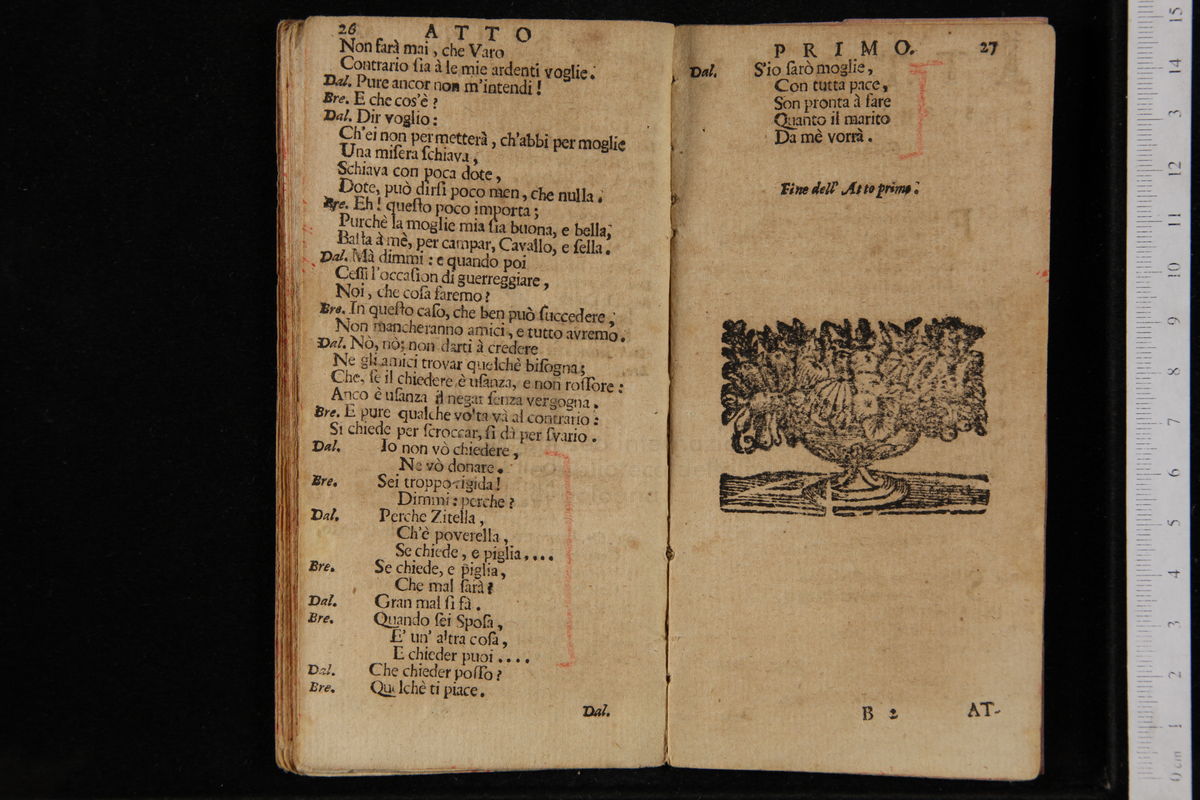 26 ATTO
Non farà mai, che Varo
Contrario ſia à le mie ardenti voglie.
Dal. Pure ancor non m'intendi!
Bre. E che cos'è?
Dal. Dir voglio:
Ch'ei non permetterà, ch'abbi per moglie
Una miſera ſchiava,
Schiava con poca dote,
Dote, può dirſi poco men, che nulla.
Bre. Eh! queſto poco importa;
Purchè la moglie mia ſia buona, e bella,
Baſta à mè, per campar, Cavallo, e ſella.
Dal. Mà dimmi: e quando poi
Ceſſi l'occaſion di guerreggiare,
Noi, che coſa faremo?
Bre. In queſto caſo, che ben può ſuccedere,
Non mancheranno amici, e tutto avremo.
Dal. Nò, nò; non darti à credere
Ne gli amici trovar quelchè biſogna;
Che, ſe il chiedere è uſanza, e non roſſore:
Anco è uſanza il negar ſenza vergogna.
Bre. E pure qualche vo'ta và al contrario:
Si chiede per ſcroccar, ſi dà per ſvario.
Dal. Io non vò chiedere,
Ne vò donare.
Bre. Sei troppo rigida!
Dimmi: perche?
Dal. Perche Zitella,
Ch'è poverella,
Se chiede, e piglia....
Bre. Se chiede, e piglia,
Che mal ſarà?
Dal. Gran mal ſi fà.
Bre. Quando ſei Spoſa,
E' un' altra coſa,
E chieder puoi....
Dal. Che chieder poſſo?
Bre. Quelchè ti piace.
Dal.
PRIMO. 27
Dal. S'io ſarò moglie,
Con tutta pace,
Son pronta à fare
Quanto il marito
Da mè vorrà.
Fine dell' Atto primo.
B 2 AT-
15
14
13
12
11
10
9
8
7
6
5
4
3
2
1
0 cm